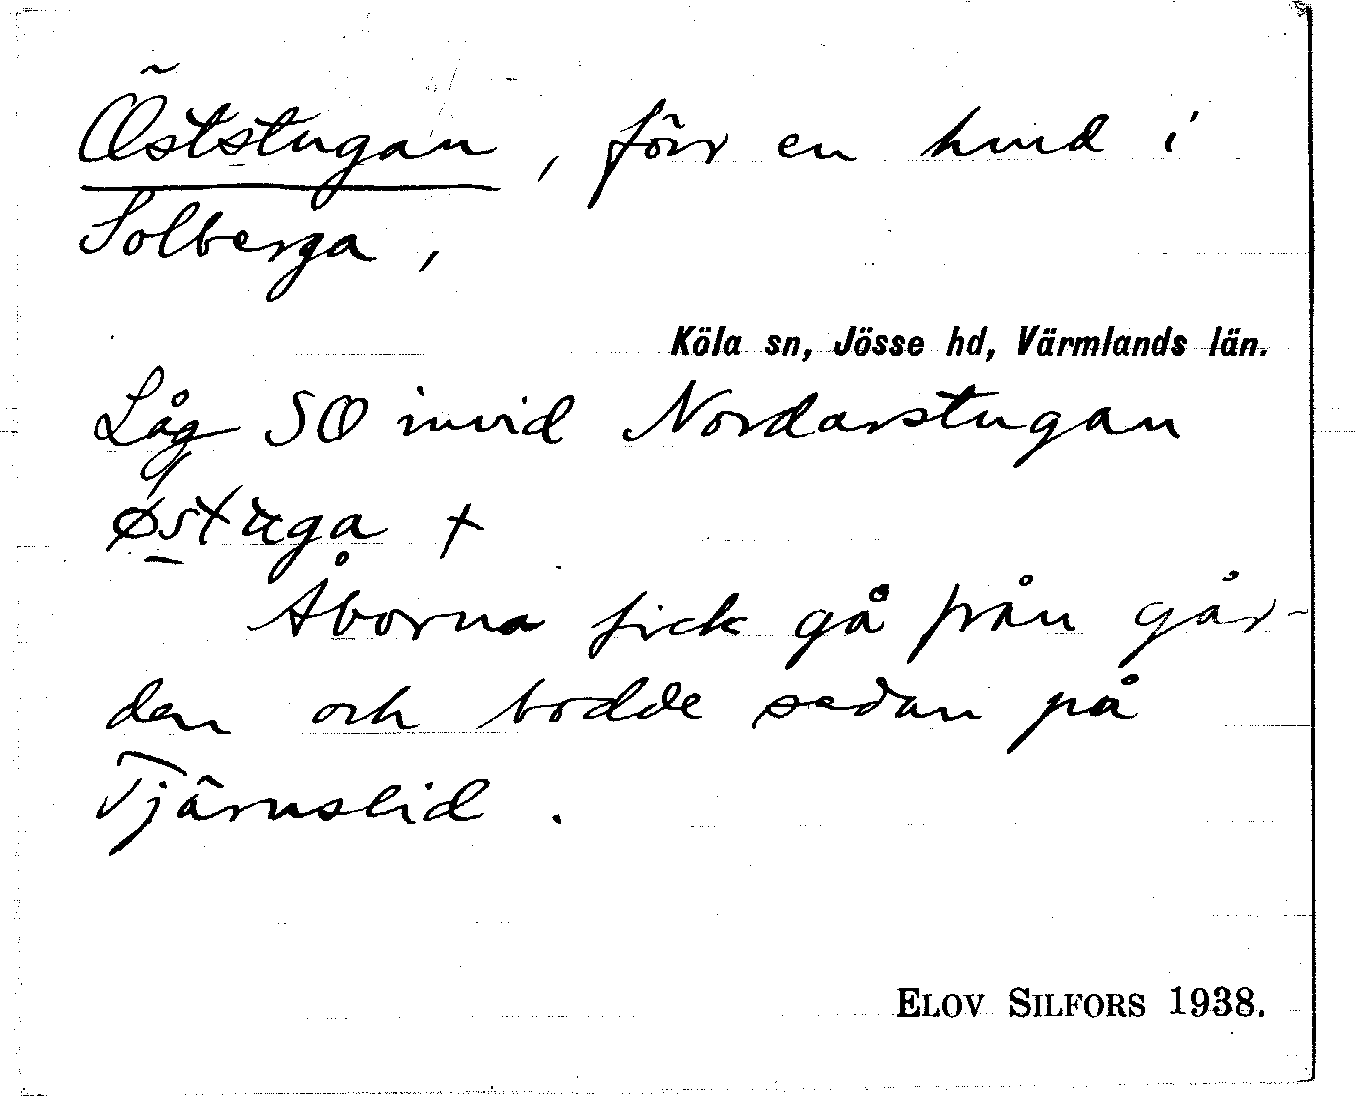 Öststugan, förr en hmd i
Solberga,
Köla sn, Jösse hd, Värmlands län.
Låg SO invid Nordarstugan
østuga †
Åborna fick gå från går-
den och bodde sedan på
Tjärnslid.
ELOV SILFORS 1938.